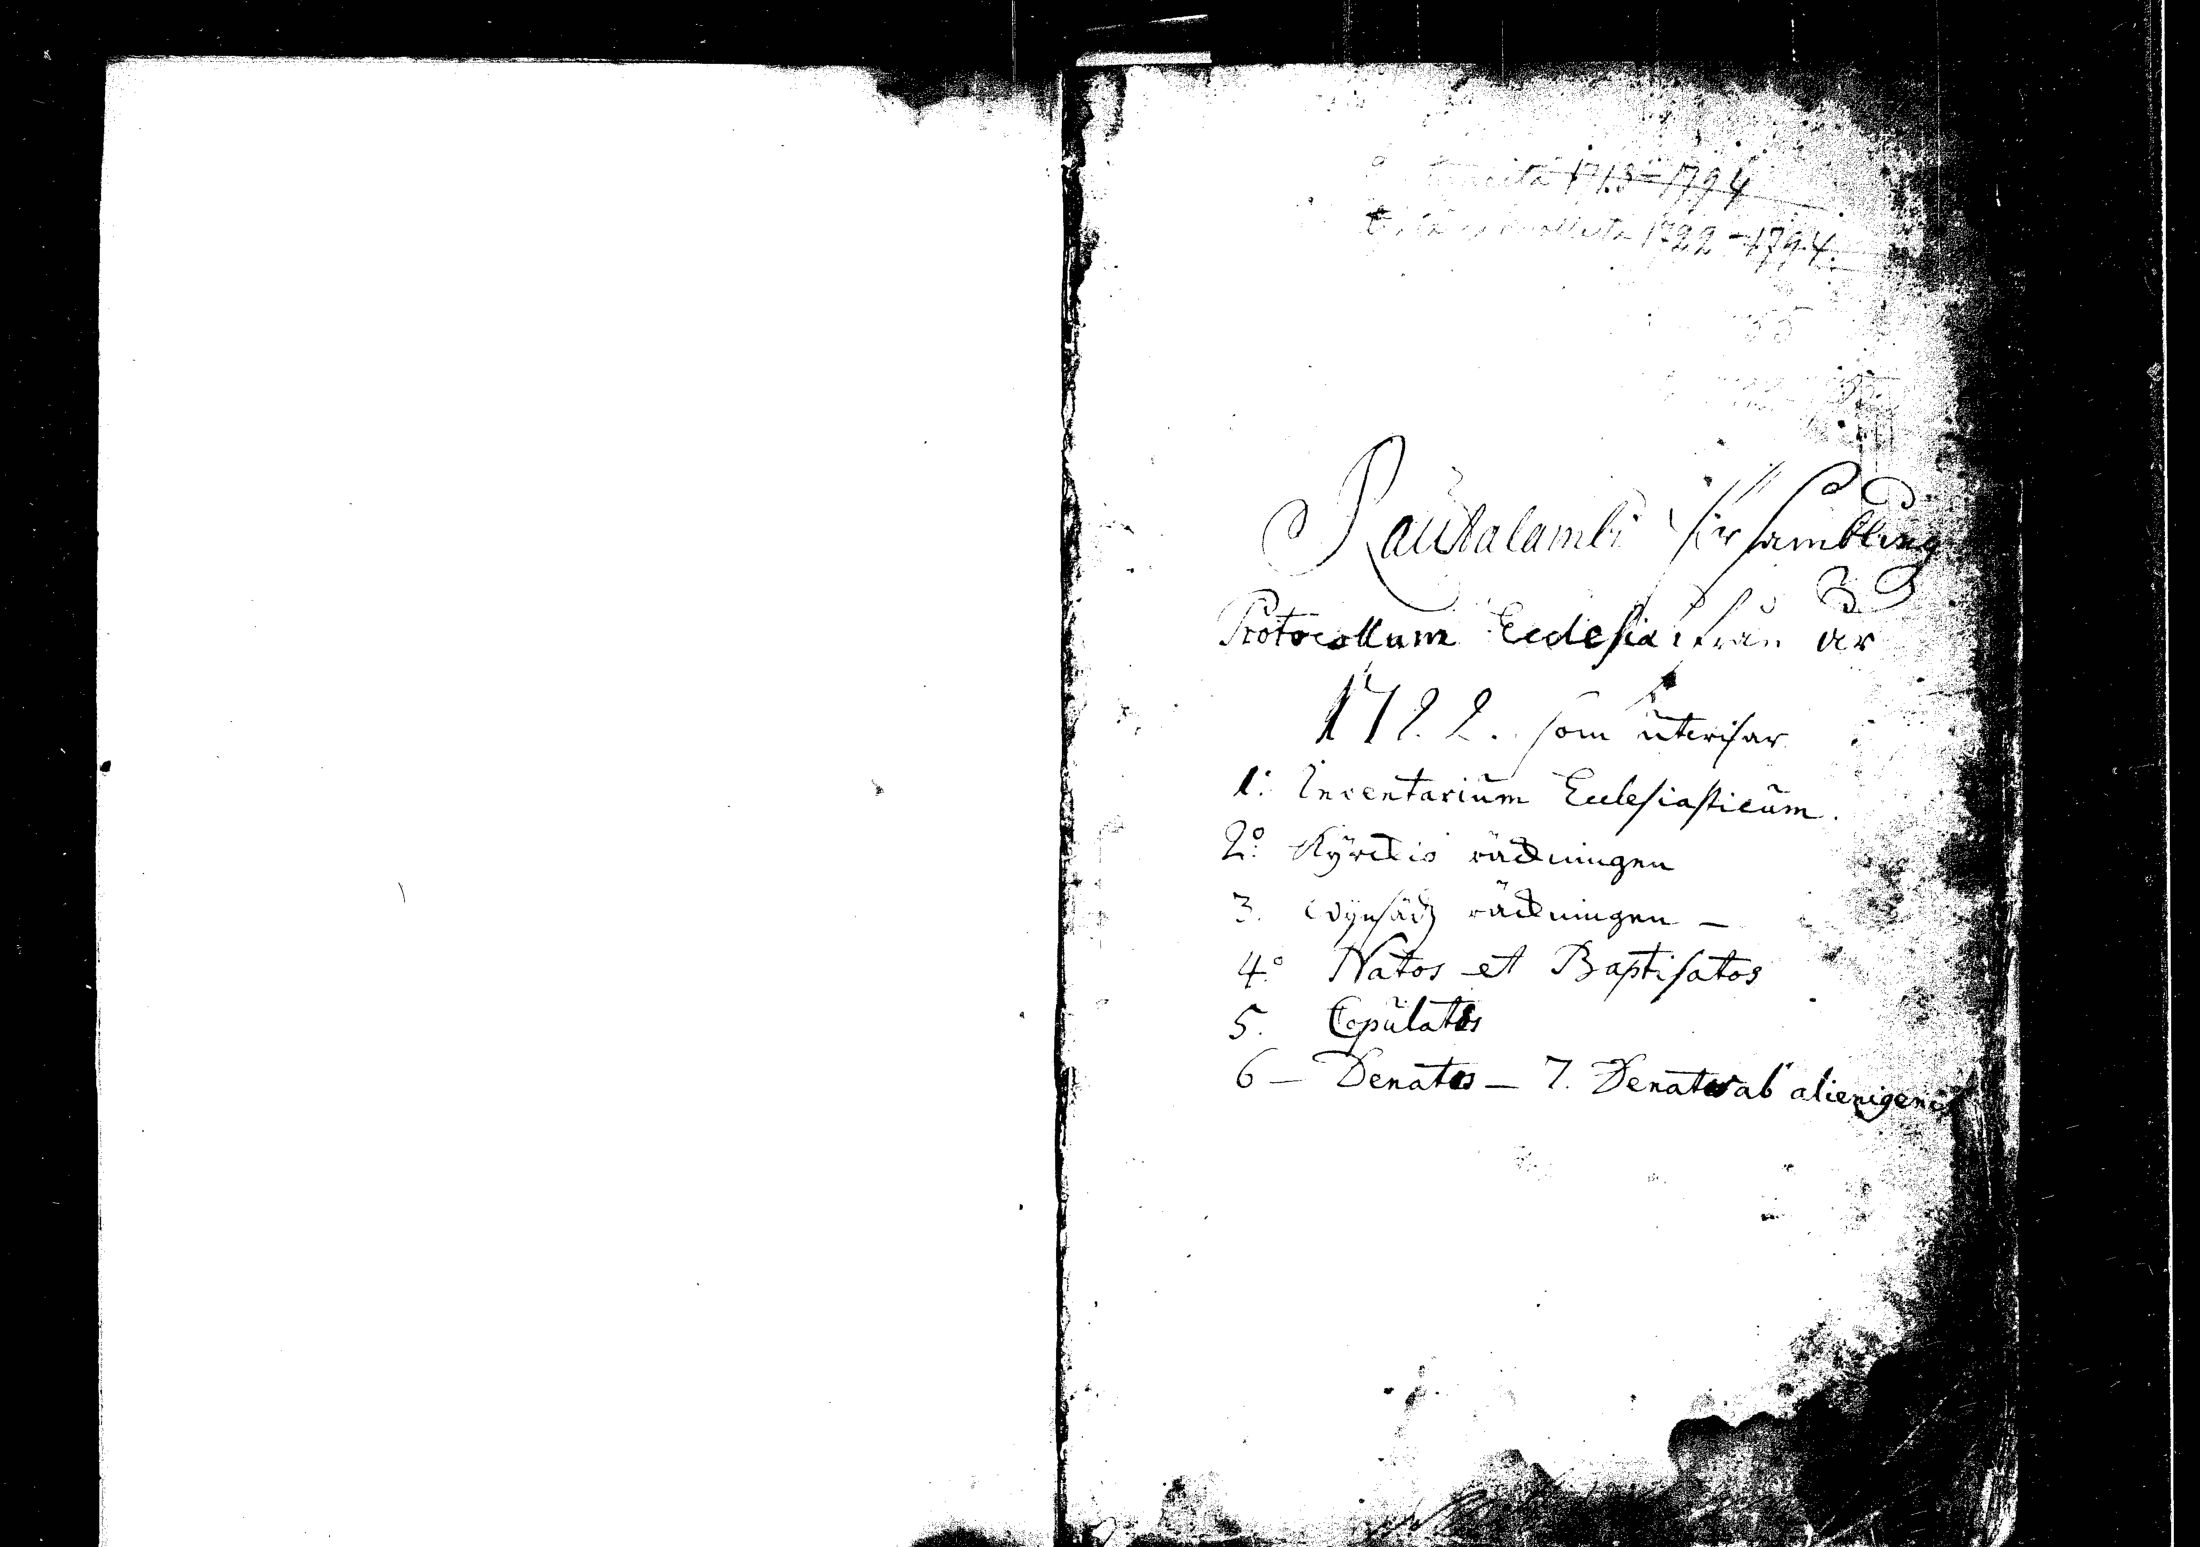 1713-1794
1722-1794.
55
Rautalambi försambling
Protocollum Ecclesiæ ifrån år
1722. som utvisar
1: Inventarium Ecclesiasticum.
2:o Kyrckio räckningen
3. Wijnsädz räckningen –
4:o Natos et Baptisatos
5. Copulatos
6 – Denatos – 7. Denatos ab alienigenis